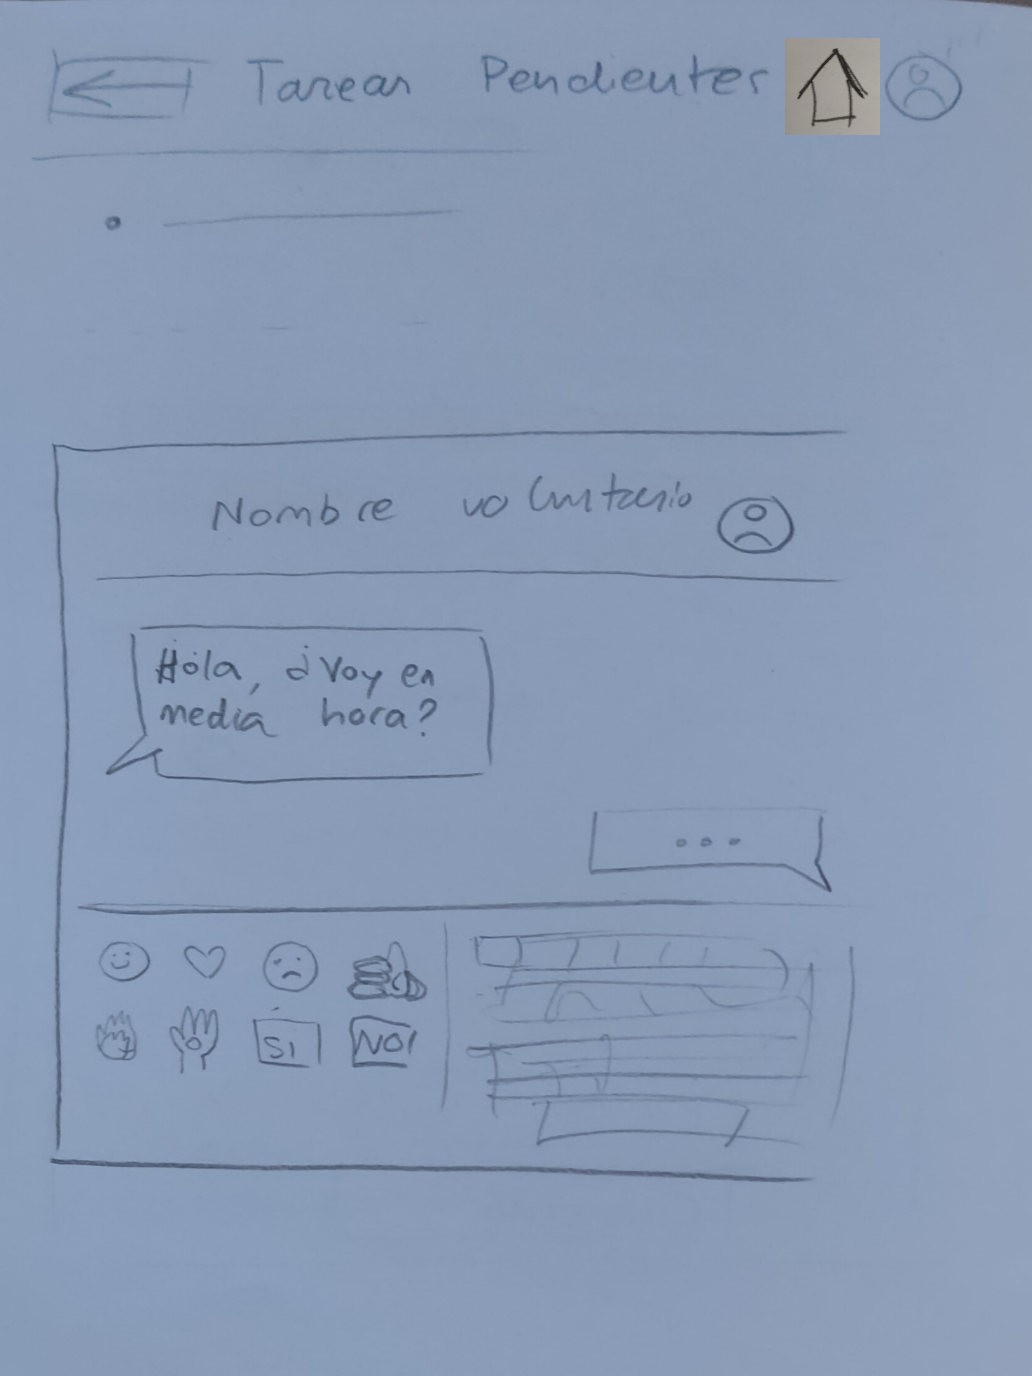 Tareas Pendientes
Nombre voluntario
Hola, ¿Voy en
media hora?
...
SI
NO